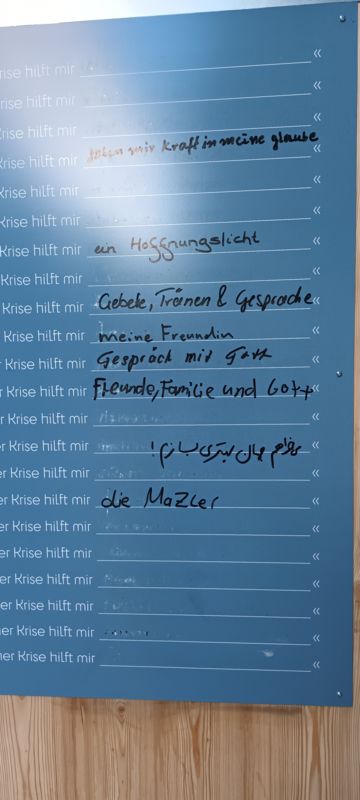 Krise hilft mir «
Krise hilft mir «
Krise hilft mir «
Krise hilft mir geben mir kraft in meine glaube «
Krise hilft mir «
Krise hilft mir «
Krise hilft mir ein Hoffnungslicht «
Krise hilft mir «
Krise hilft mir Gebete, Tränen & Gespräche «
r Krise hilft mir meine Freundin «
r Krise hilft mir Gespräch mit Gott «
r Krise hilft mir Freunde, Familie und Gott «
r Krise hilft mir «
er Krise hilft mir جهان بهتری بسازم ! «
er Krise hilft mir «
er Krise hilft mir die MaZLer «
er Krise hilft mir «
er Krise hilft mir «
ner Krise hilft mir «
ner Krise hilft mir «
ner Krise hilft mir «
ner Krise hilft mir «